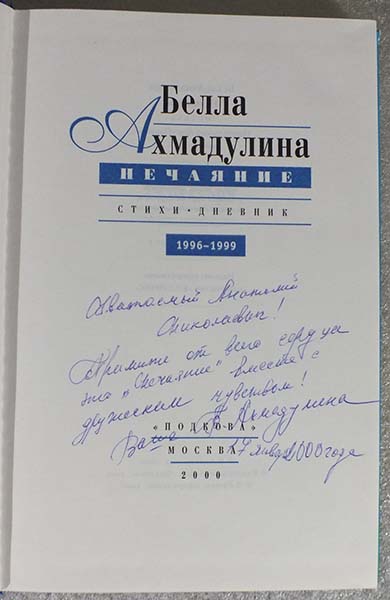 Белла
Ахмадулина
НЕЧАЯНИЕ
СТИХИ • ДНЕВНИК
1996–1999
Уважаемый Анатолий
Николаевич!
Примите от всего сердца
это „Нечаяние" вместе с
дружеским чувством!
Ваша Б Ахмадулина
«ПОДКОВА»
17 января 2000 года
МОСКВА
2000